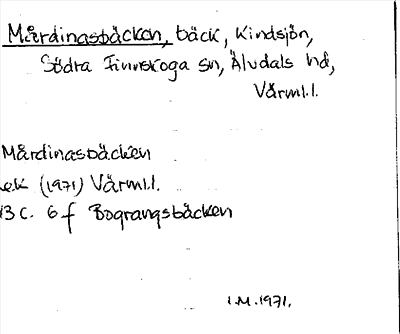 Mårdinasbäcken, bäck, Kindsjön,
Södra Finnskoga sn, Älvdals hd,
Värml.l.
Mårdinasbäcken
ek (1971) Värml.l.
13 C. 6 f Bograngsbäcken
I.M.1971.